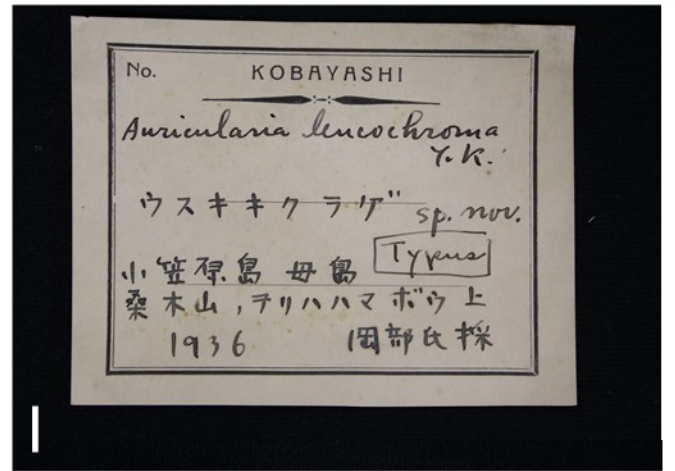 No. KOBAYASHI
Auricularia leucochroma
Y.K.
ウスキキクラゲ
sp. nov.
Typus
小笠原島 母島
桑木山,テリハハマボウ上
1936 岡部氏採